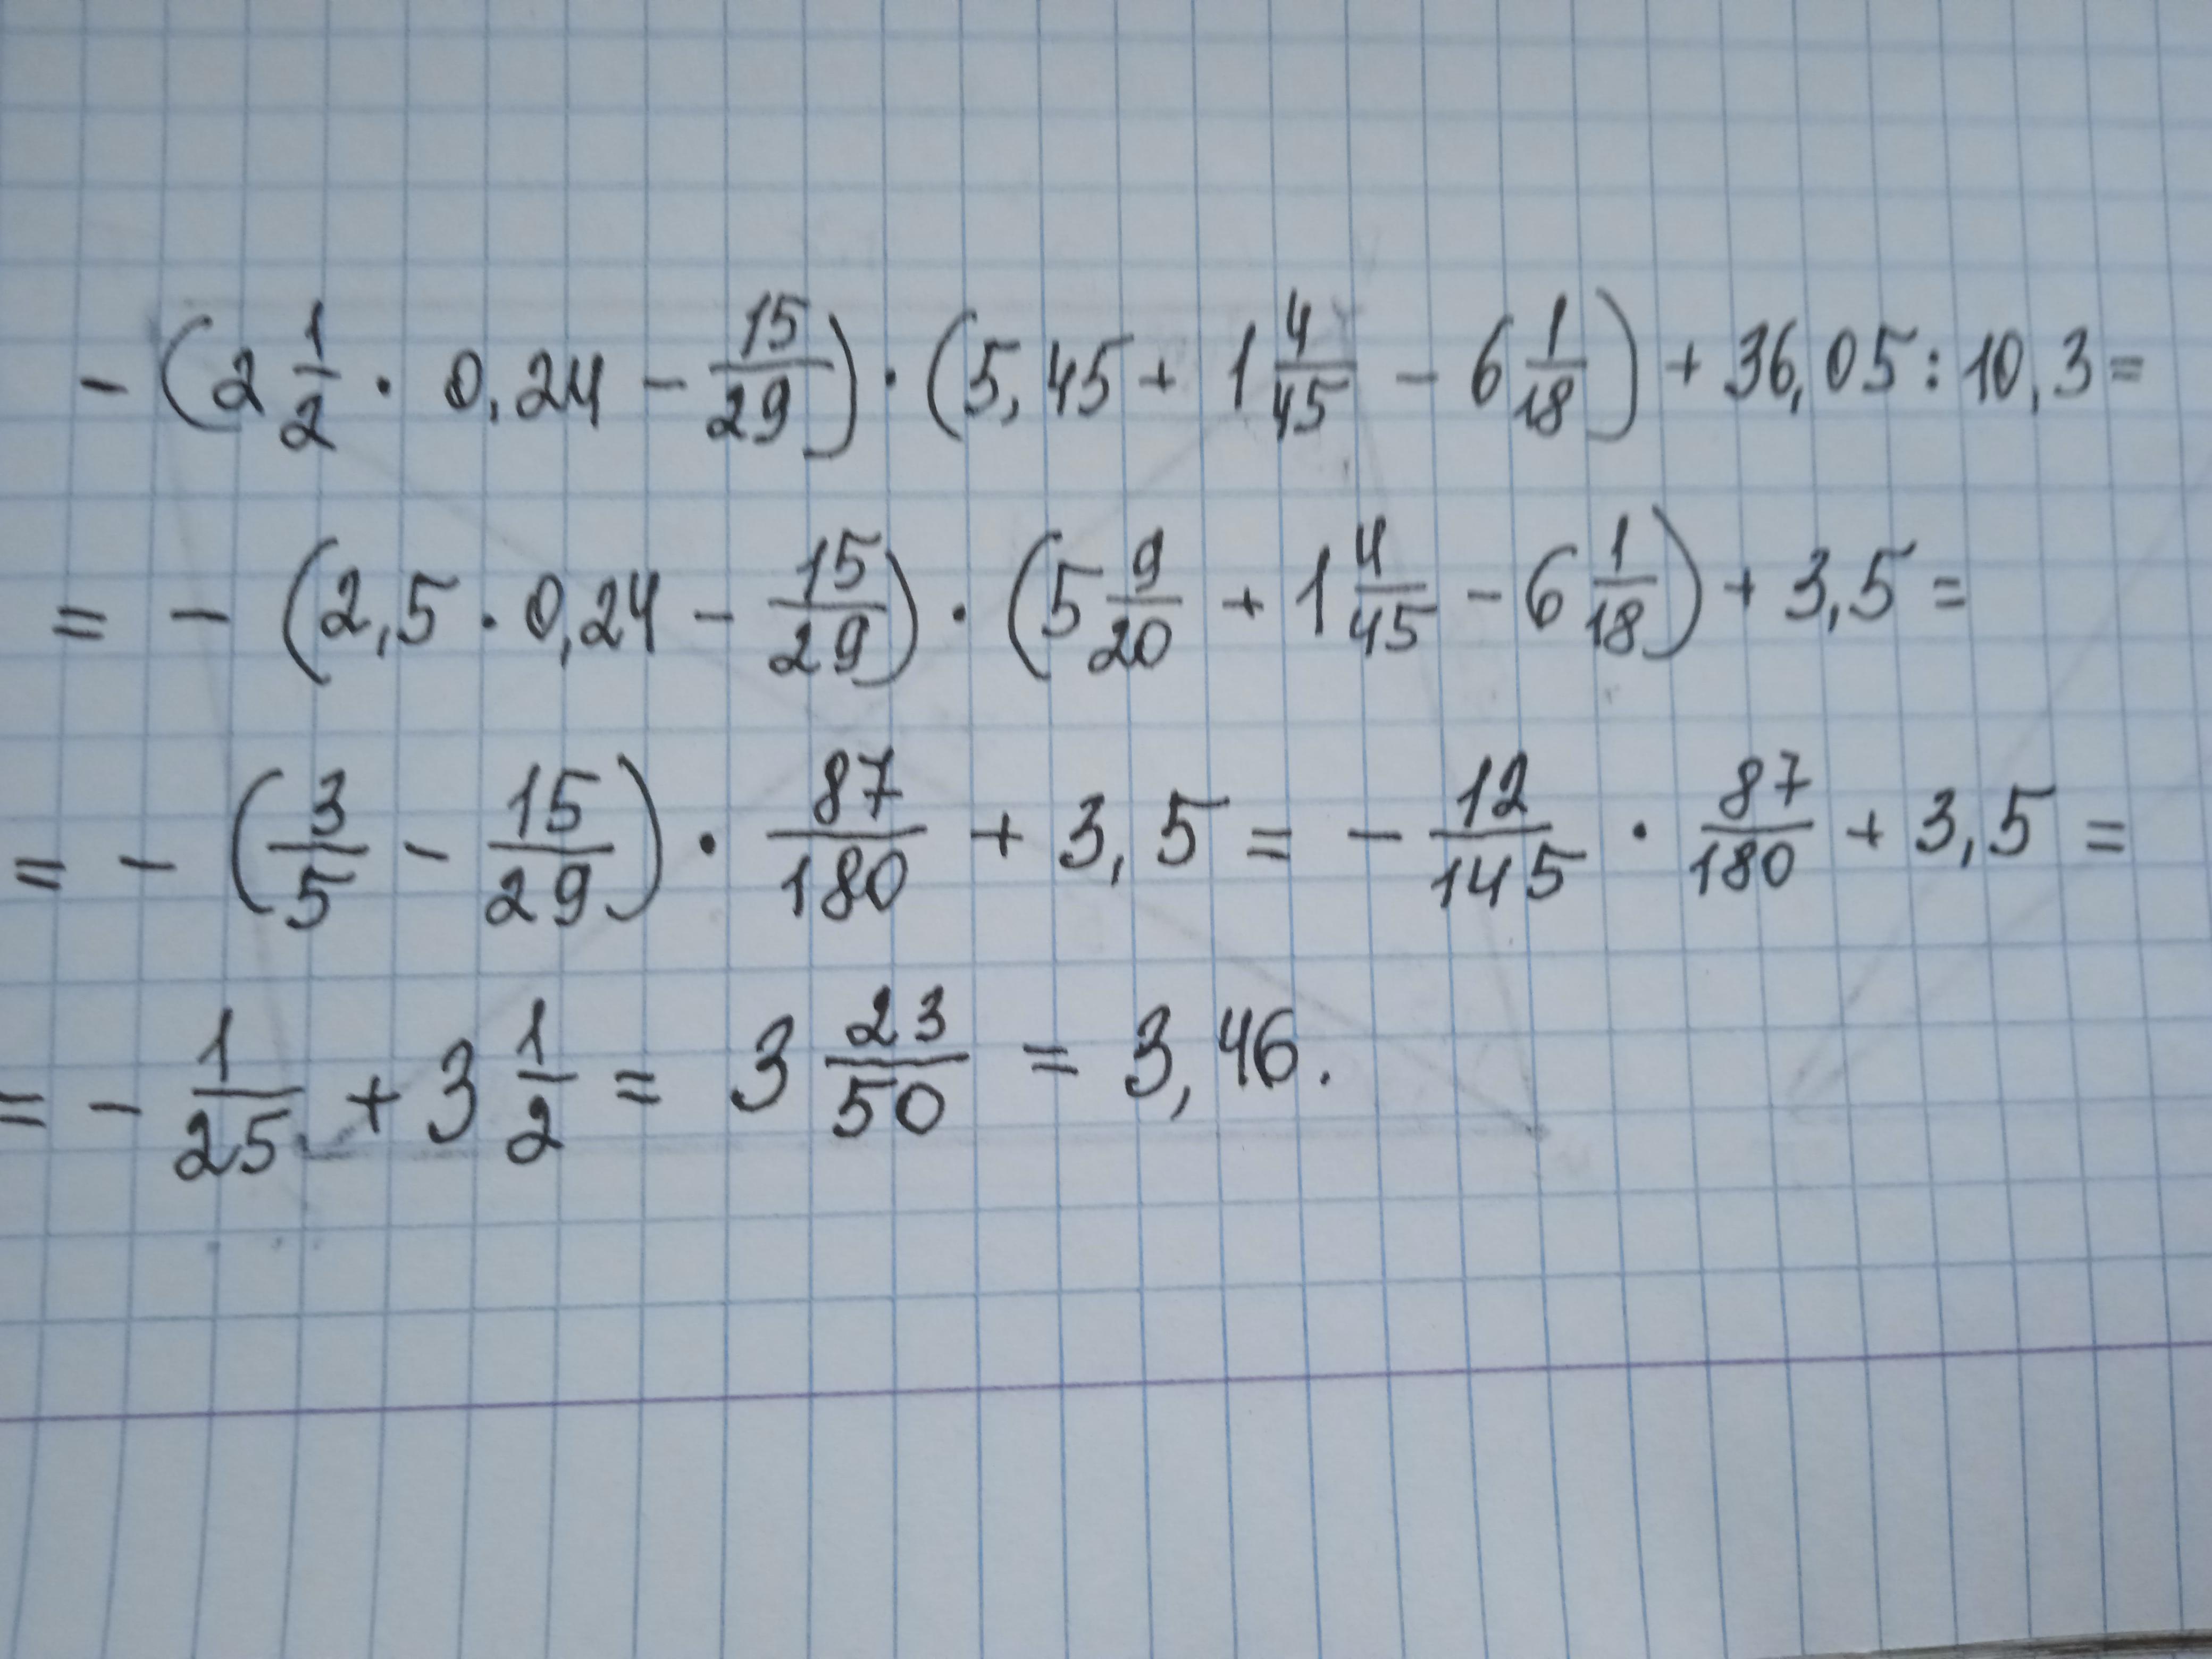 - (2 1/2 · 0,24 - 15/29) · (5,45 + 1 4/45 - 6 1/18) + 36,05 : 10,3 =
= - (2,5 · 0,24 - 15/29) · (5 9/20 + 1 4/45 - 6 1/18) + 3,5 =
= - (3/5 - 15/29) · 87/180 + 3,5 = - 12/145 · 87/180 + 3,5 =
= - 1/25 + 3 1/2 = 3 23/50 = 3,46.